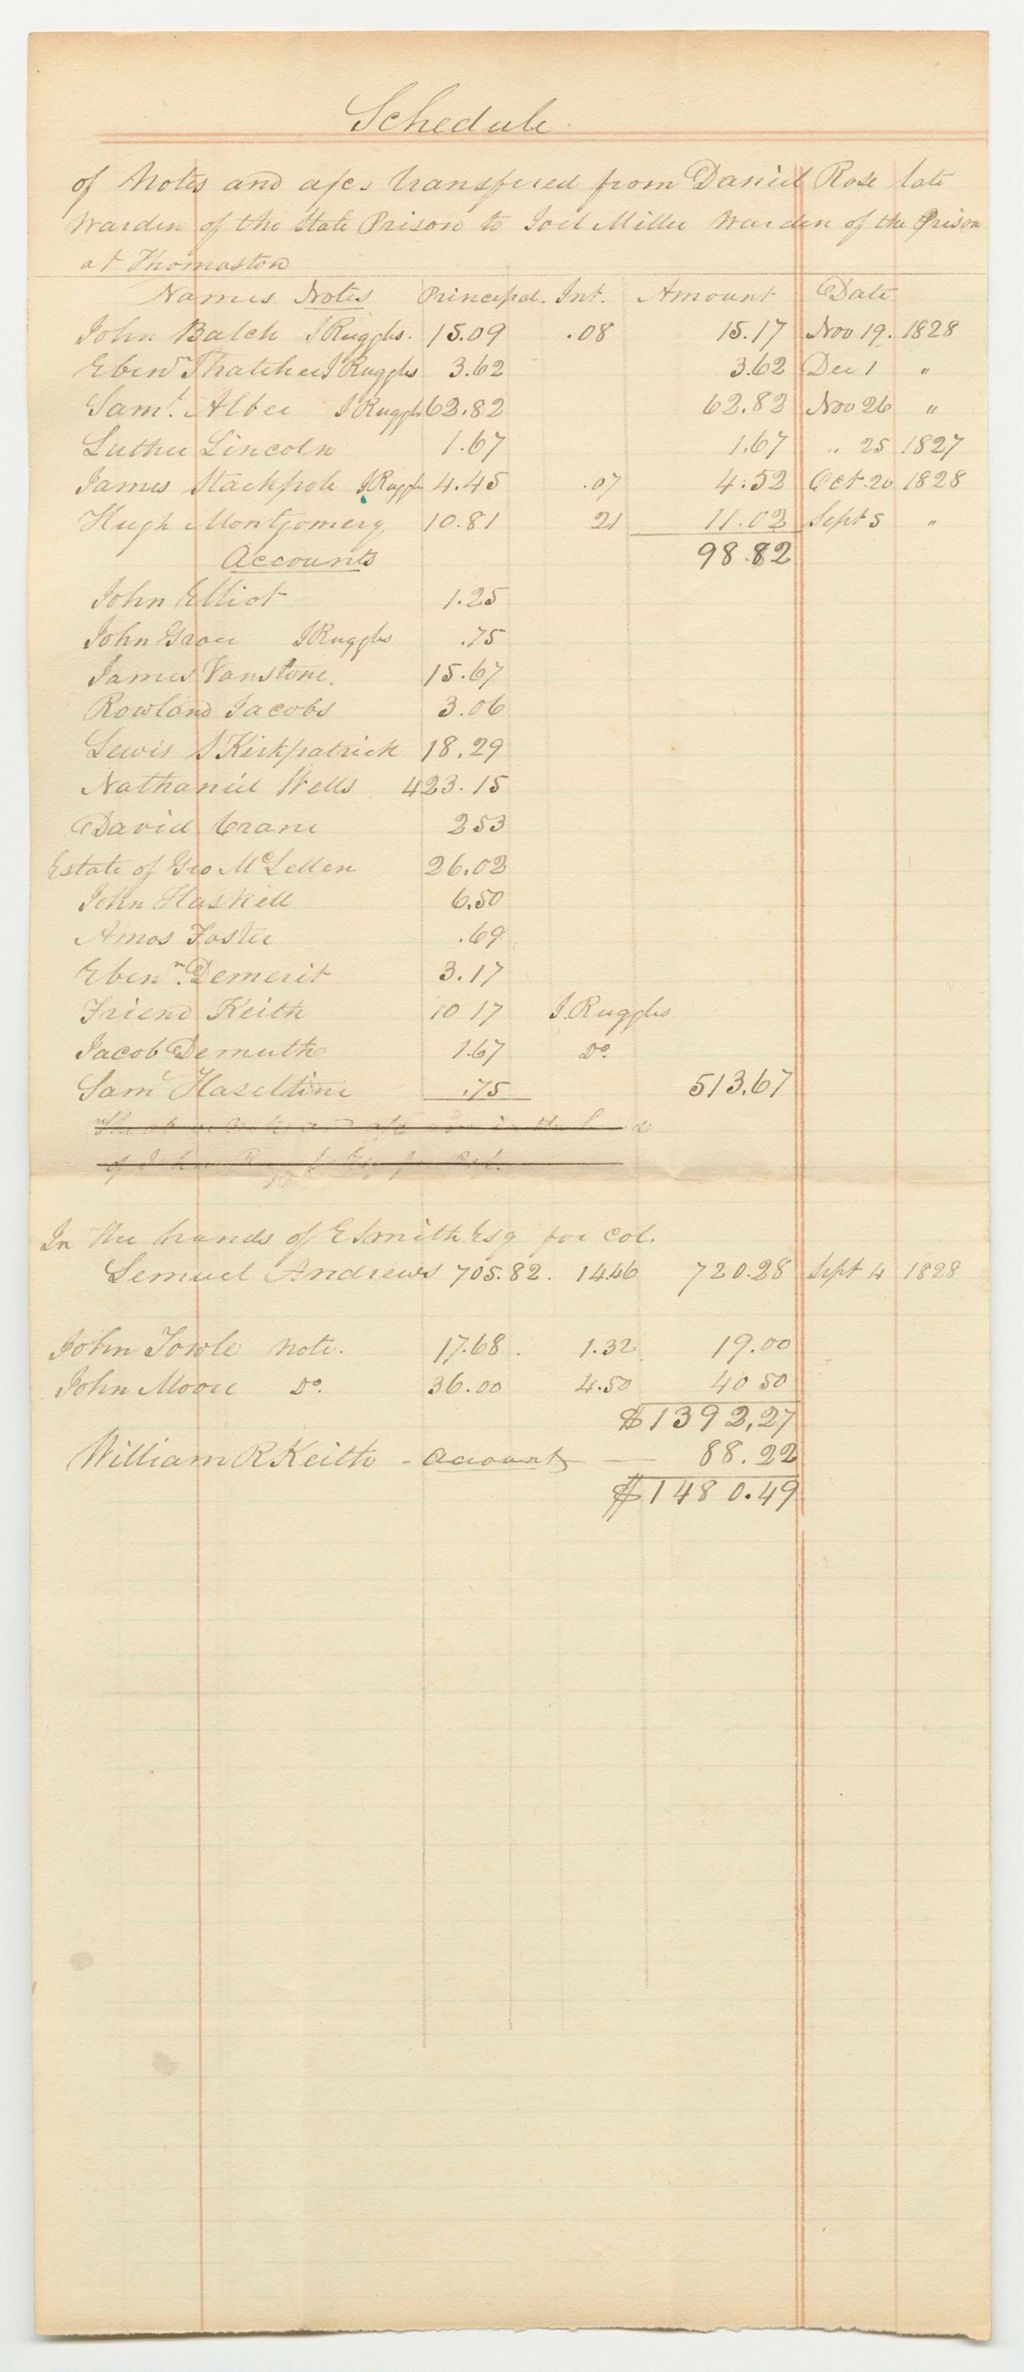 Schedule
of Notes and a/cs transfered from Daniel Rose late
Warden of the State Prison to Joel Miller Warden of the Prison
at Thomaston
Names Notes Principal. Int. Amount Date
John Balch J Ruggles. 15.09 .08 15.17 Nov 19. 1828
Ebenr Thatcher J Ruggles 3.62 3.62 Dec 1 "
Saml. Albee J Ruggles 62.82 62.82 Nov 26 "
Luther Lincoln 1.67 1.67 " 25 1827
James Stackpole J Ruggles 4.45 .07 4.52 Oct. 20 1828
Hugh Montgomery 10.81 21 11.02 Sept 5 "
98.82
Accounts
John Elliot 1.25
John Grace J Ruggles .75
James Vanstone. 15.67
Rowland Jacobs 3.06
Lewis S Kirkpatrick 18.29
Nathaniel Wells 423.15
David Crane 253
Estate of Geo McLellen 26.02
John Haskell 6.50
Amos Foster .69
Ebenr. Demerit 3.17
Friend Keith 10 17 J. Ruggles
Jacob Demuth 1.67 Do.
Saml Hazeltine .75 513.67
The above Notes and a/cs are in the hands
of John Ruggles Esq for Col.
In the hands of E Smith Esq for Col.
Lemuel Andrews 705.82. 14.46 720.28 Sept 4 1828
John Towle note. 17.68. 1.32 19.00
John Moore Do. 36.00 4.50 40 50
$1392,27
William R Keith - account — 88.22
$1480.49